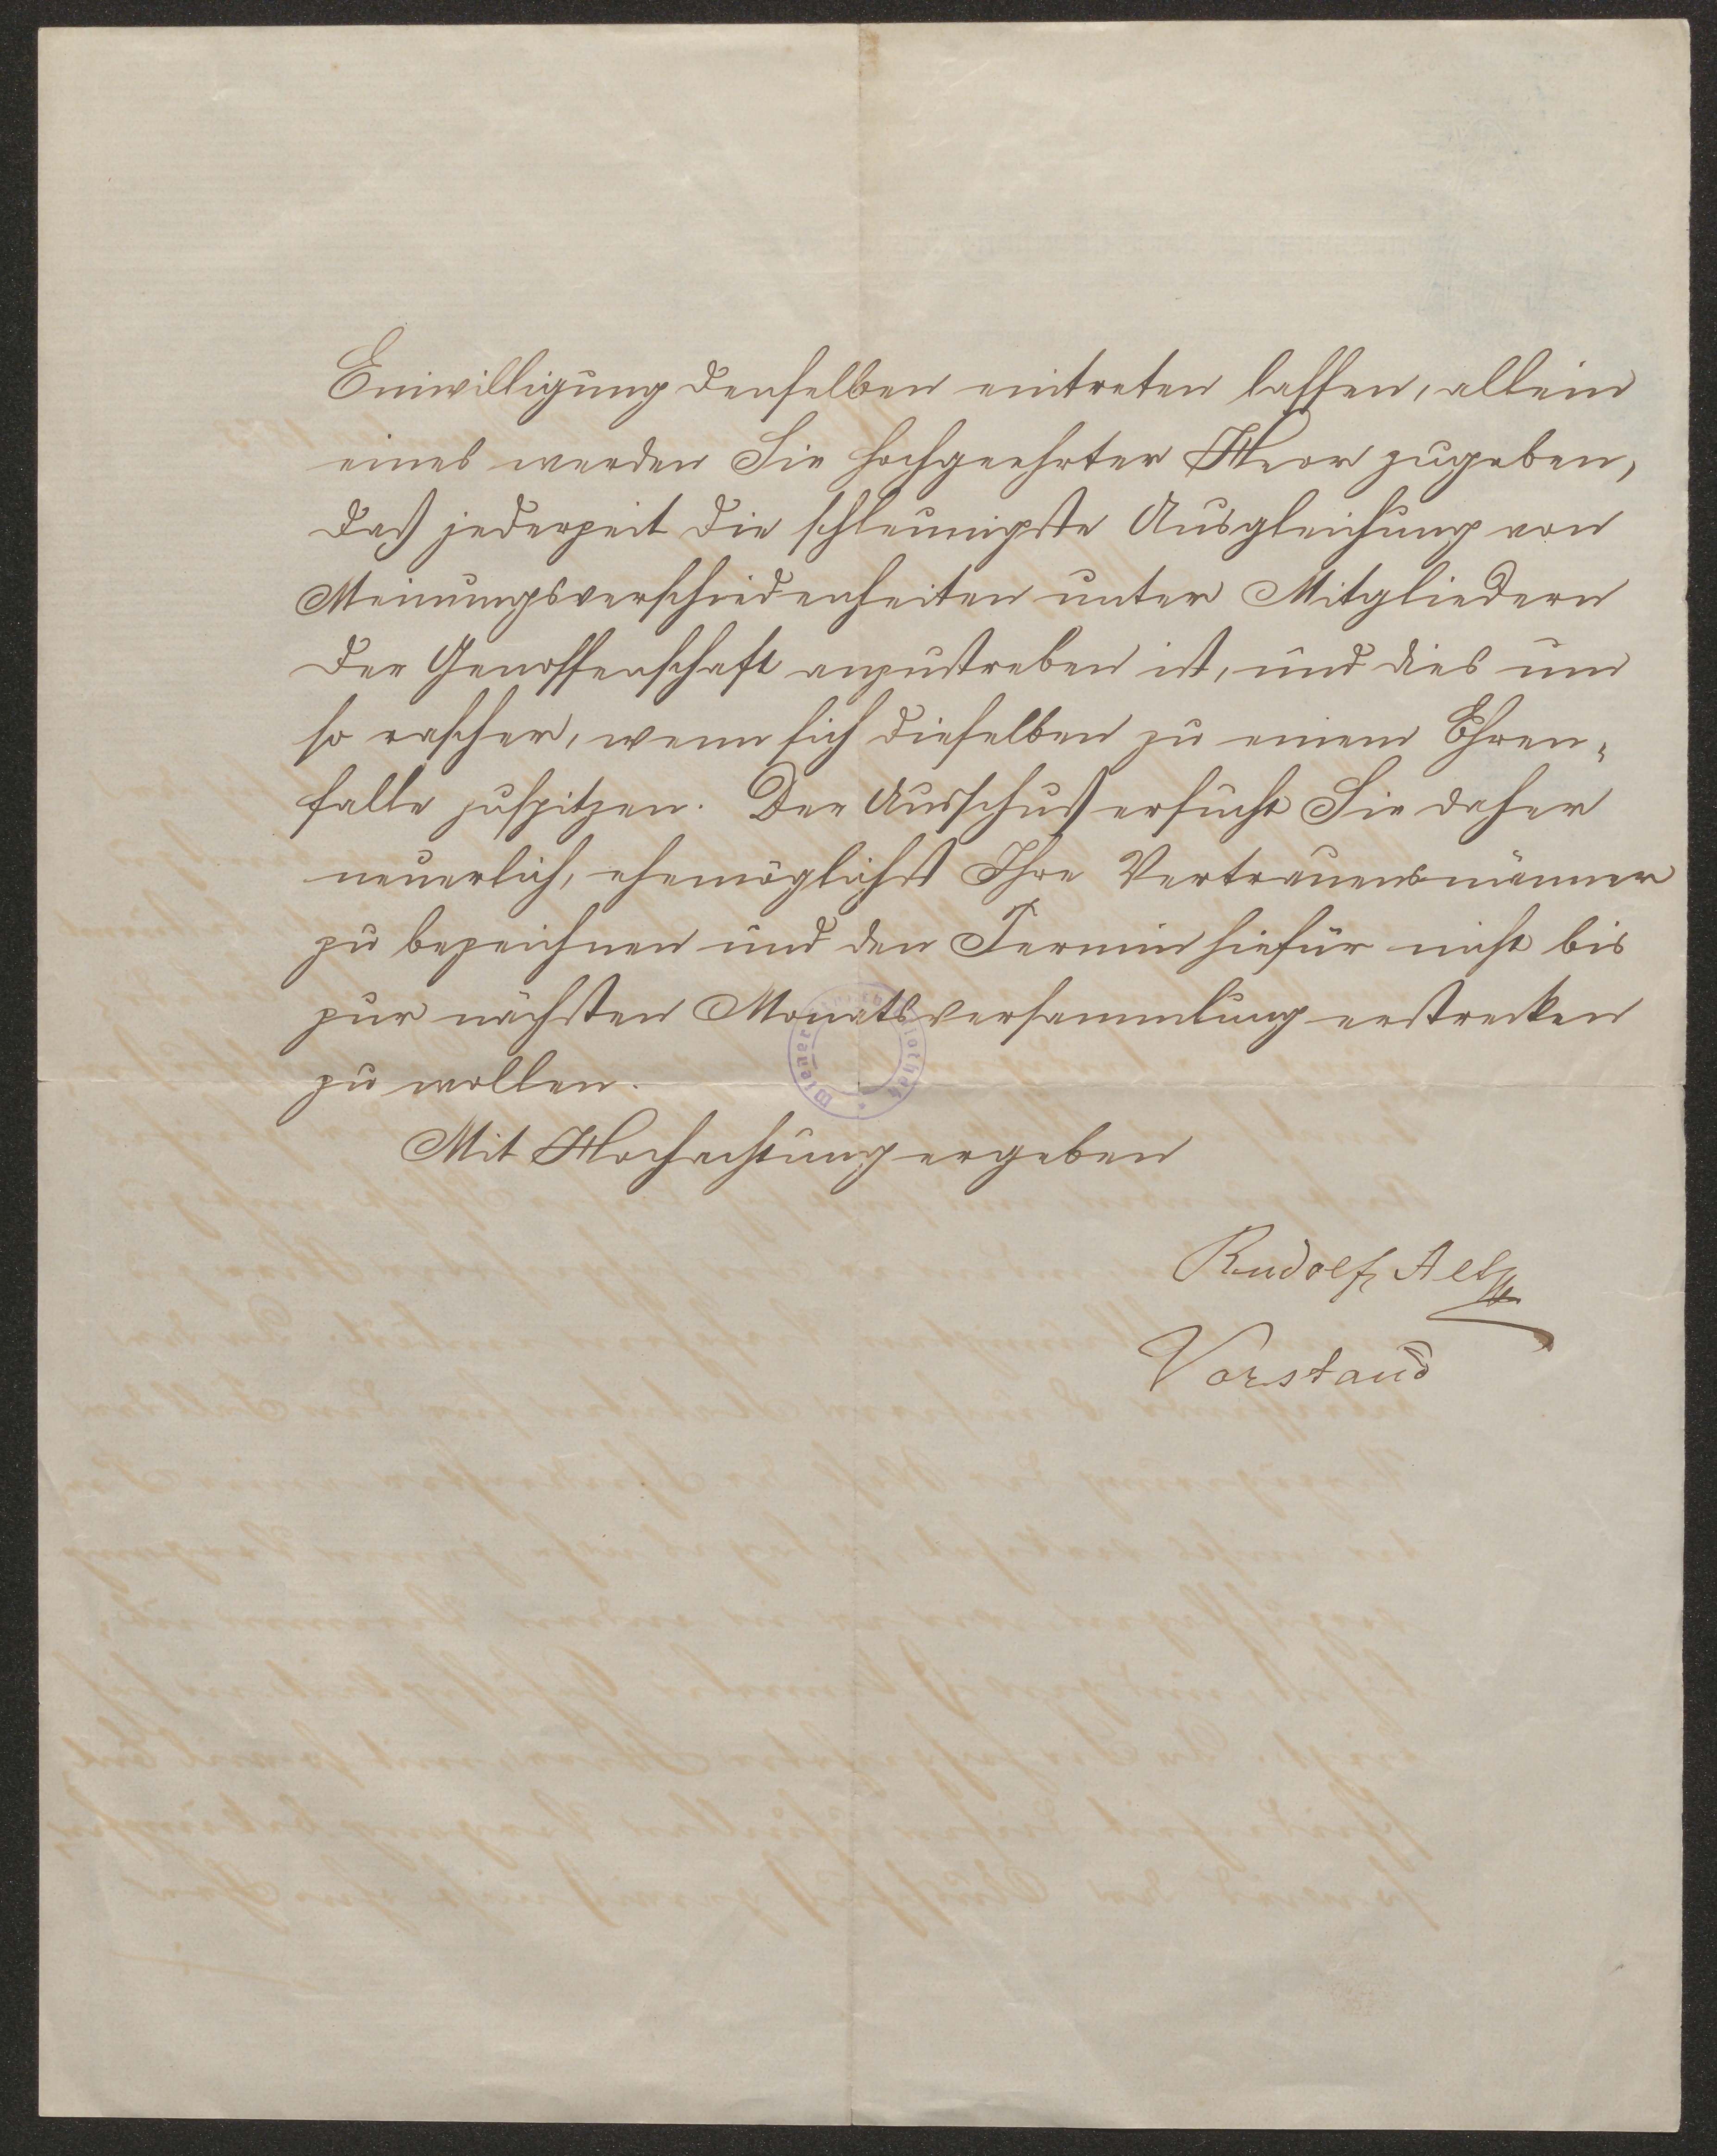 Einwilligung denselben eintreten lassen, allein
eines werden Sie hochgeehrter Herr zugeben,
daß jederzeit die schleunigste Ausgleichung von
Meinungsverschiedenheiten unter Mitgliedern
der Genossenschaft anzustreben ist, und dies um
so rascher, wenn sich dieselben zu einem Ehren„
falle zuspitzen. Der Ausschuß ersucht Sie daher
neuerlich, ehemöglichst Ihre Vertrauensmänner
zu bezeichnen und den Termin hiefür nicht bis
zur nächsten Monatsversammlung erstrecken
zu wollen.
Mit Hochachtung ergeben
Rudolf Alt
Vorstand